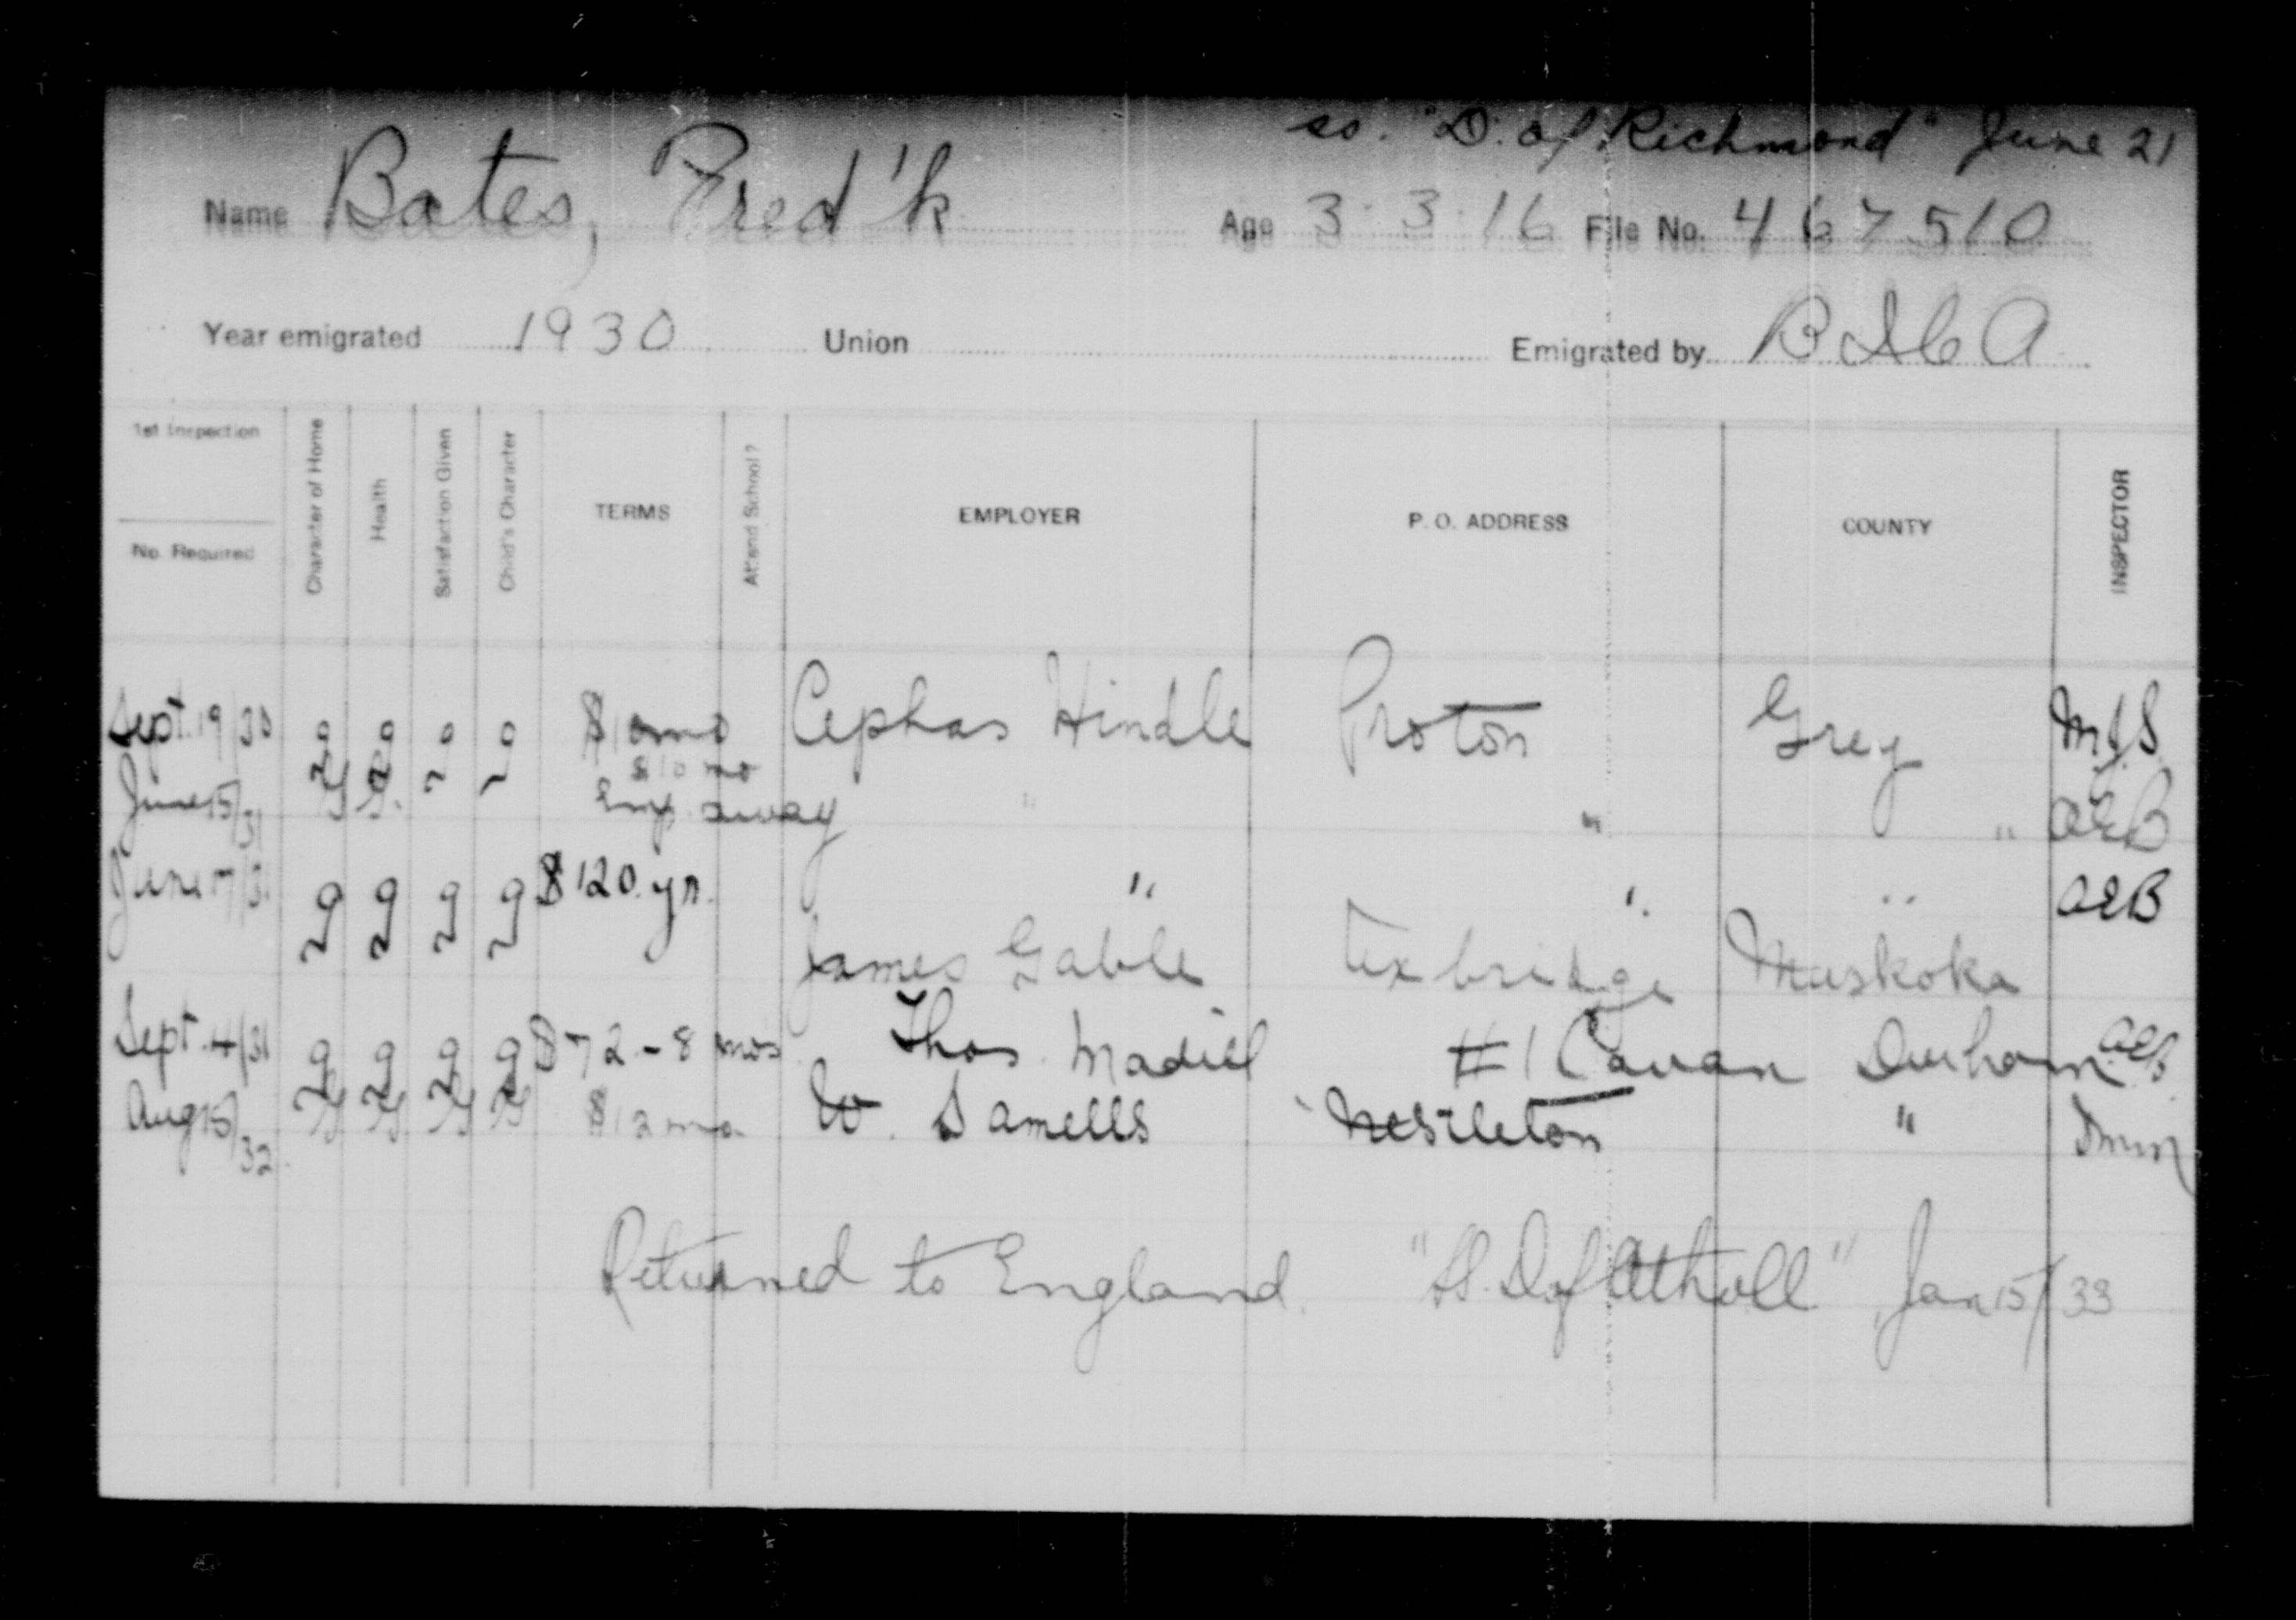 ss. "D. of Richmond" June 21
Name Bates, Fred'k Age 3 3 16 File No. 467510
Year emigrated 1930 Union Emigrated by B I C A
1st Inspection
No. Required
Character of Home
Health
Satisfaction Given
Child's Character
TERMS
Attend School?
EMPLOYER
P. O. ADDRESS
COUNTY
INSPECTOR
Sept. 19/30 g g g g $10 mo Cephas Hindle Proton Grey M.J.S.
$10 mo
June 15/31 g g. away " " " AEB
June g g g g $120 yr. " " " AEB
James Gable Uxbridge Muskoka
Sept. 4/31 g g g g $72 - 8 mos Thos. Madill #1 Cavan Durham AEB
Aug 15/32 g g g g $12 mo W. Samells Nestleton " 
Returned to England. "D of Atholl" Jan 15/33